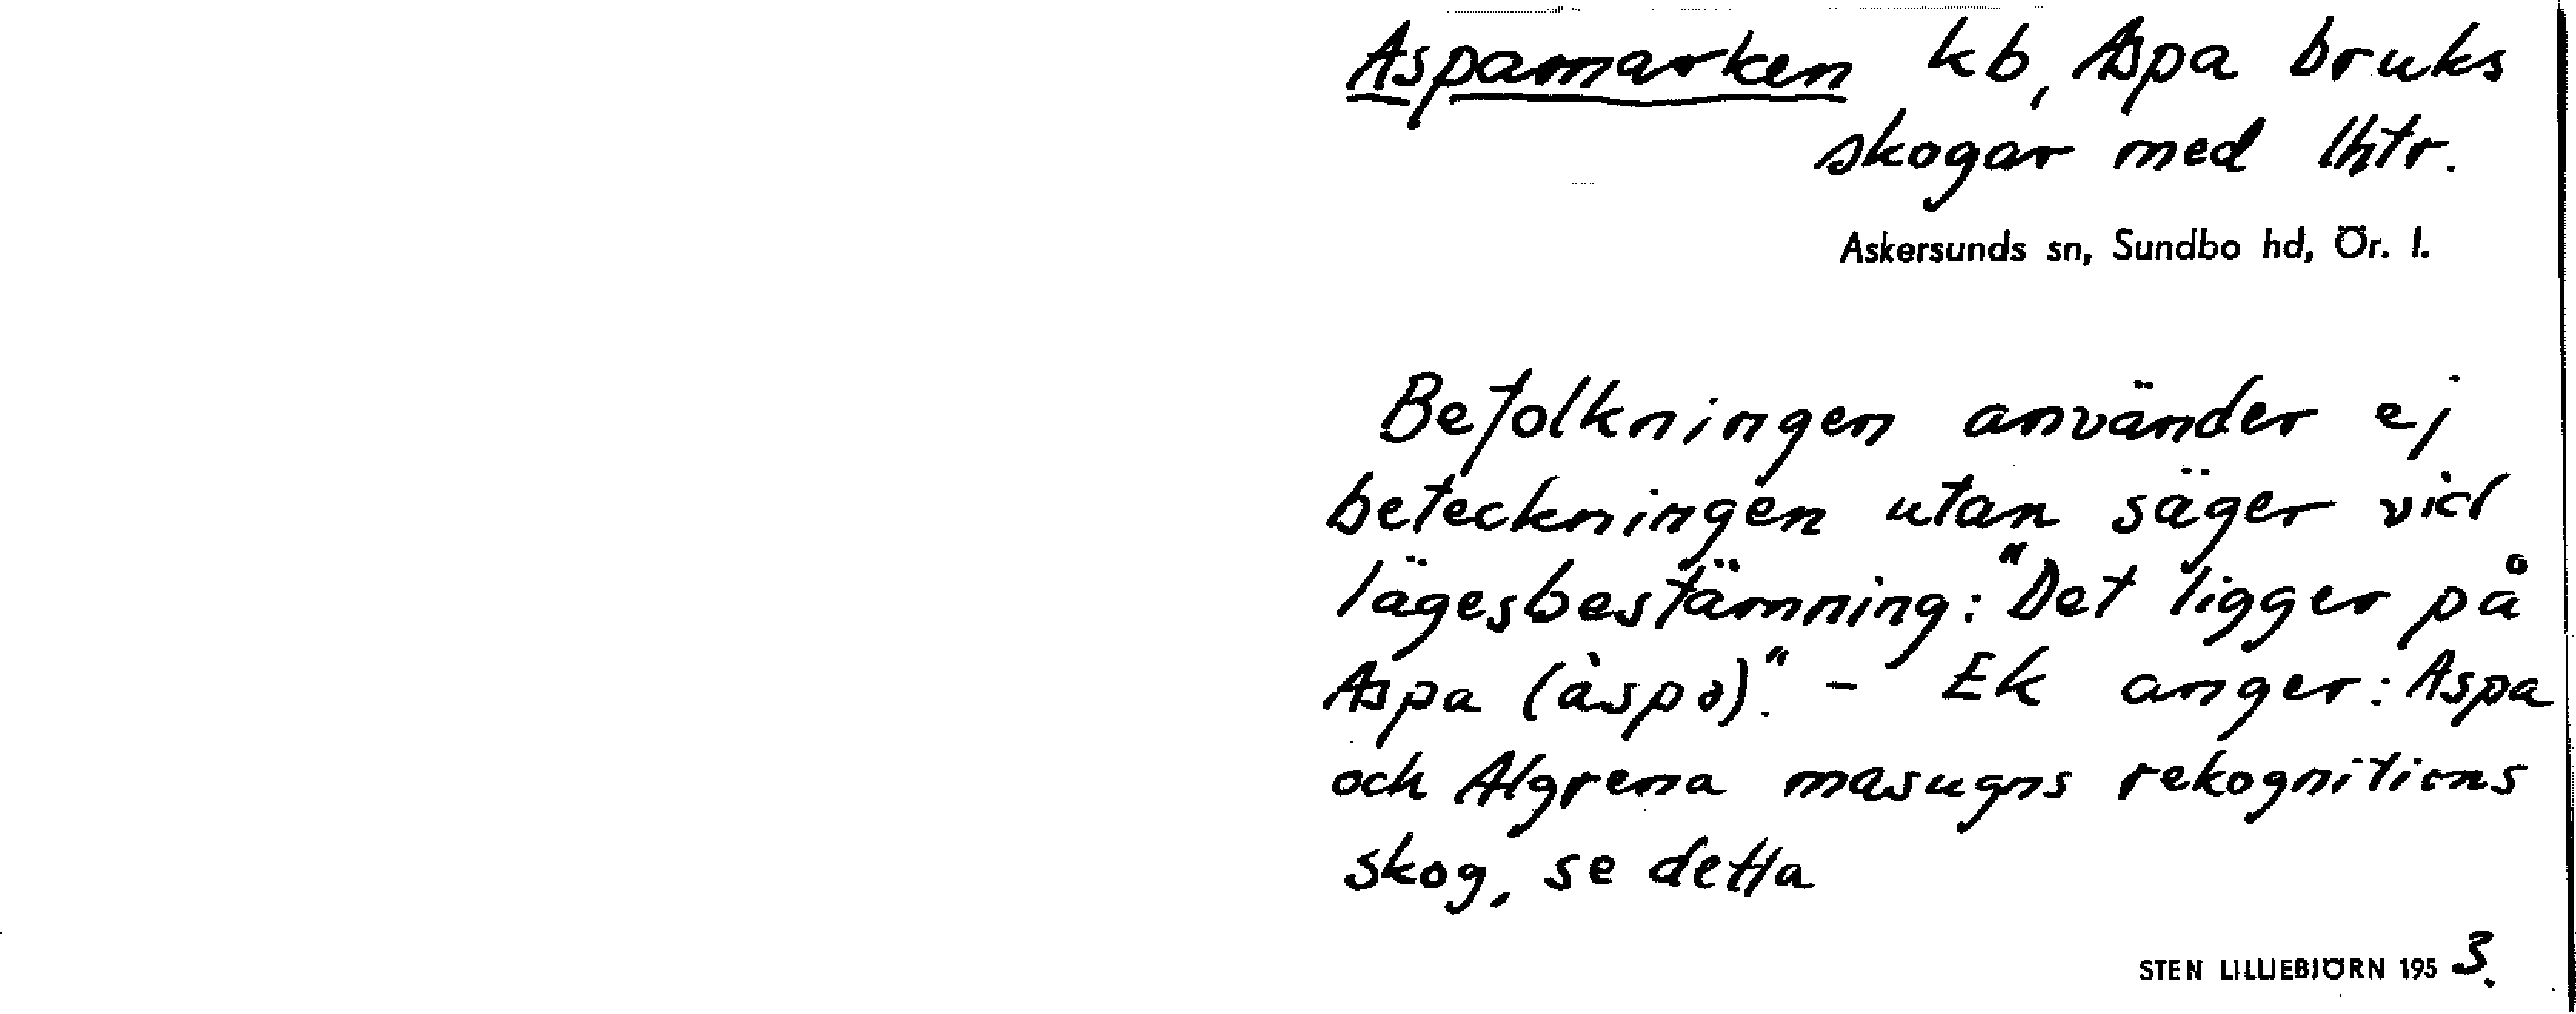 Aspamarken kb, Aspa bruks
skogar med lhtr.
Askersunds sn, Sundbo hd, Ör. l.
Befolkningen använder ej
beteckningen utan säger vid
lägesbestämning: "Det ligger på
Aspa (àspa)." - Ek anger: Aspa
och Algrena masugns rekognitions
skog, se detta
STEN LILLIEBJÖRN 1953.